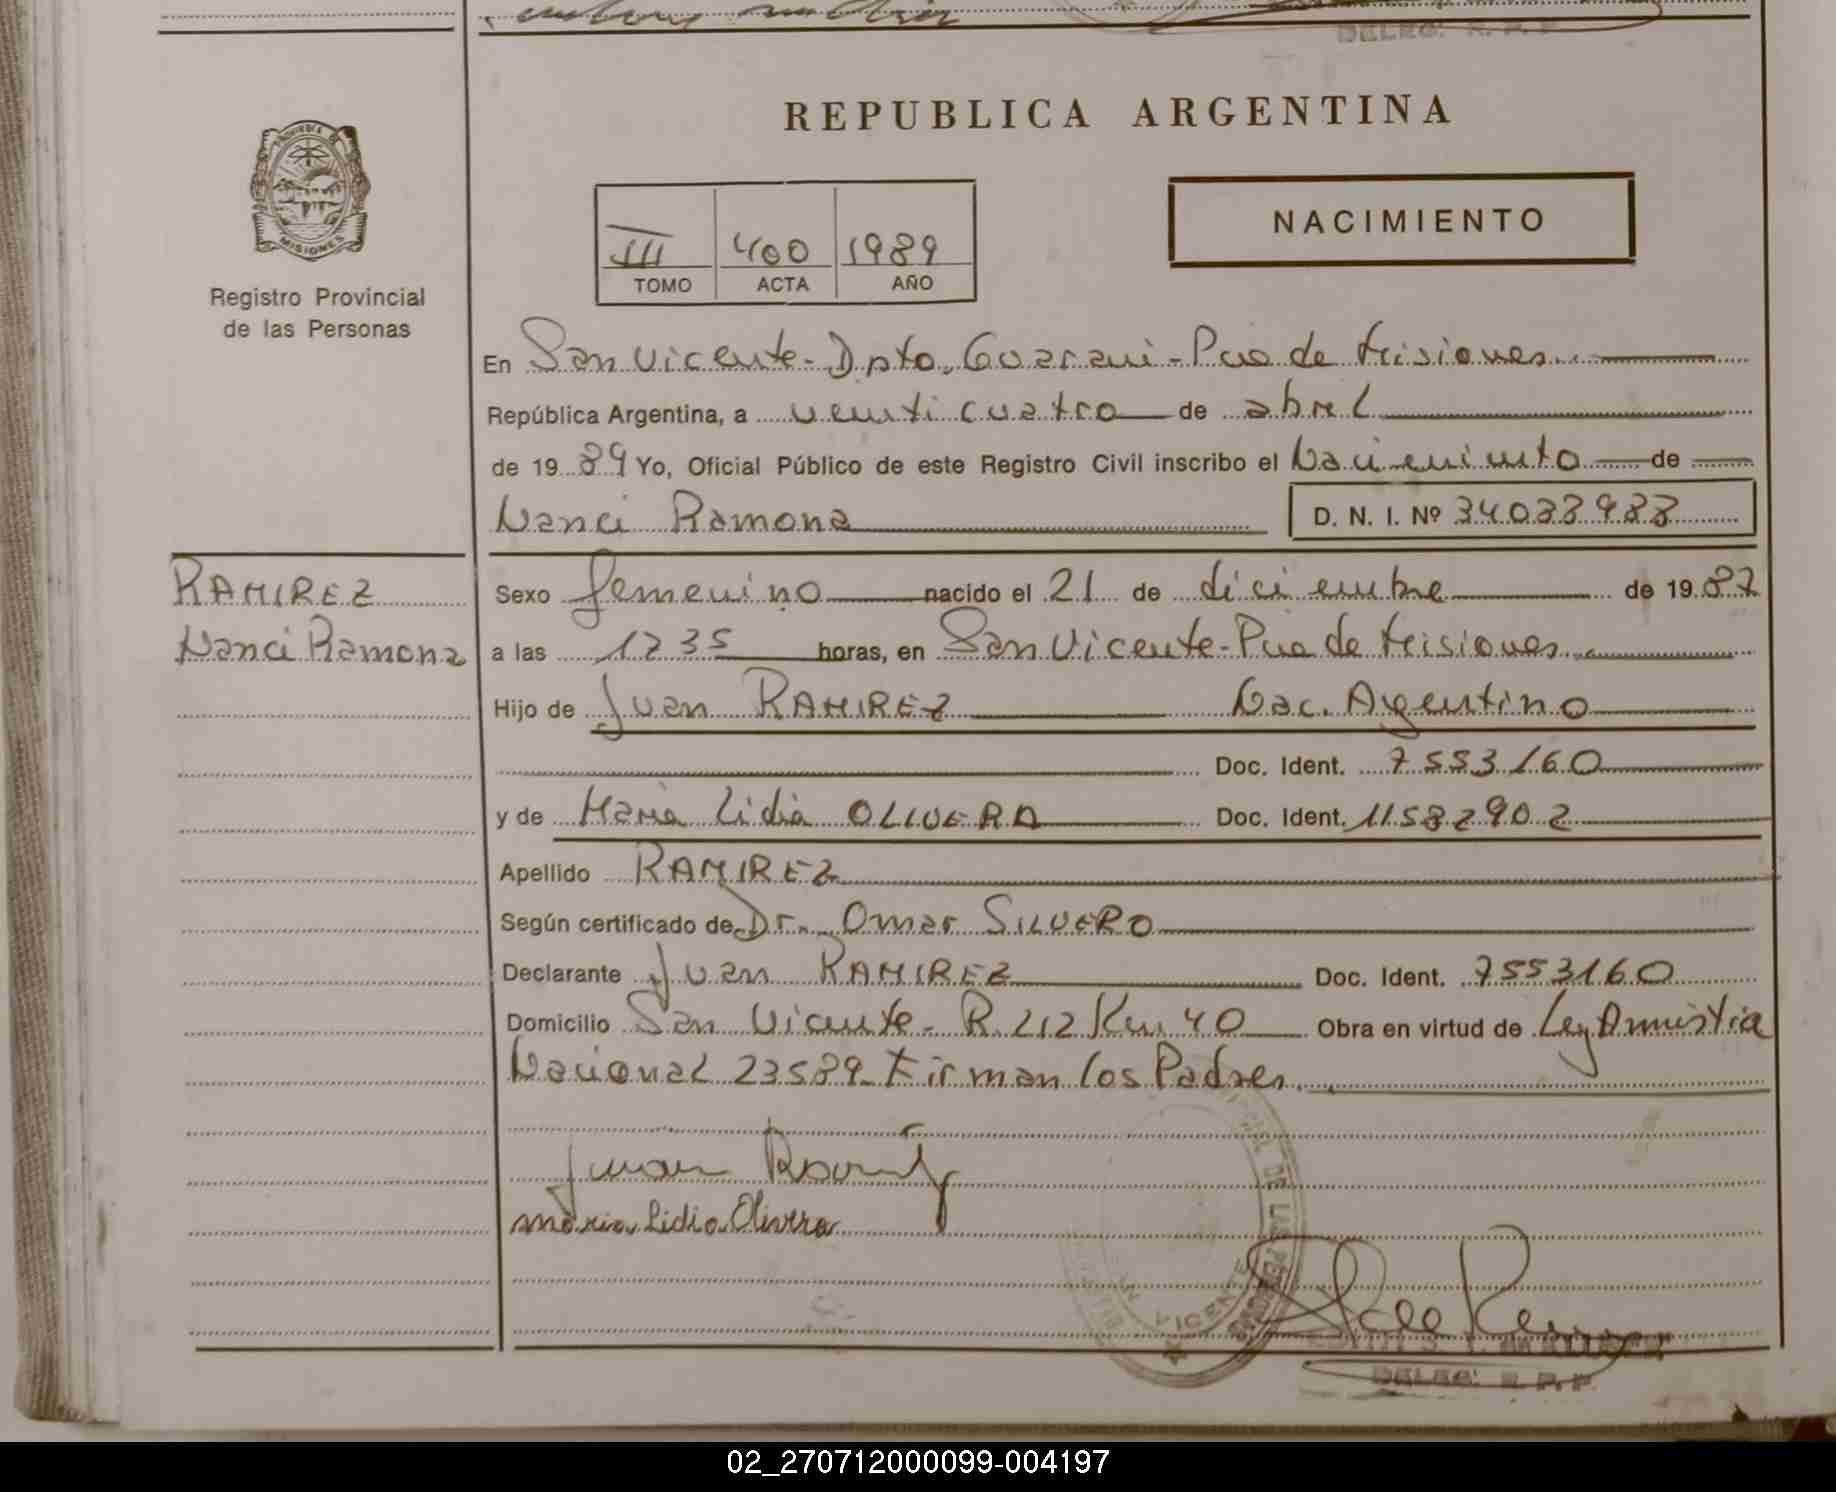 DELEG. R. P. P.
REPUBLICA ARGENTINA
MISIONES
Registro Provincial
de las Personas
III 400 1989
TOMO ACTA AÑO
NACIMIENTO
En San Vicente - Dpto. Guarani - Pcia de Misiones
República Argentina, a veinticuatro de abril
de 19 89 Yo, Oficial Público de este Registro Civil inscribo el Nacimiento de
Nanci Ramona D. N. I. Nº 34033983
RAMIREZ
Nanci Ramona
Sexo femenino nacido el 21 de diciembre de 19 87
a las 1235 horas, en San Vicente - Pcia de Misiones
Hijo de Juan RAMIREZ Nac. Argentino
Doc. Ident. 7553160
y de Maria Lidia OLIVERA Doc. Ident. 11582902
Apellido RAMIREZ
Según certificado de Dr. Omar SILVERO
Declarante Juan RAMIREZ Doc. Ident. 7553160
Domicilio San Vicente - R. 212 Km 40 Obra en virtud de Ley Amnistia
Nacional 23589 - Firman los Padres.
Juan Ramirez
Maria Lidia Olivera
VICENTE
DELEG. R. P. P.
02_270712000099-004197